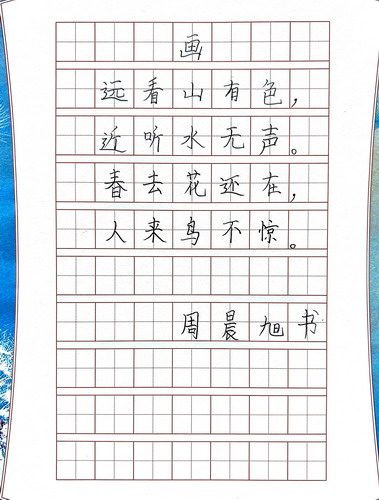 画
远看山有色，
近听水无声。
春去花还在，
人来鸟不惊。
周晨旭书